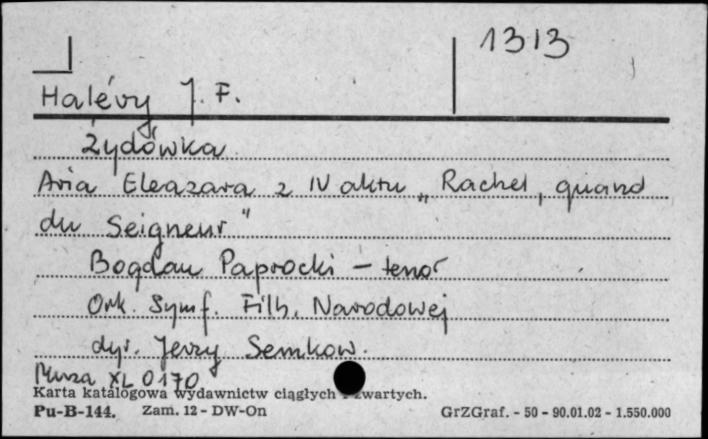 1313
Halévy J. F.
Żydówka
Aria Eleazara z IV aktu „Rachel, quand
du Seigneur"
Bogdan Paprocki – tenor
Ork. Symf. Filh. Narodowej
dyr. Jerzy Semkow.
Muza XL 0170
Karta katalogowa wydawnictw ciągłych i zwartych.
Pu-B-144. Zam. 12 - DW-On GrZGraf. - 50 - 90.01.02 - 1.550.000